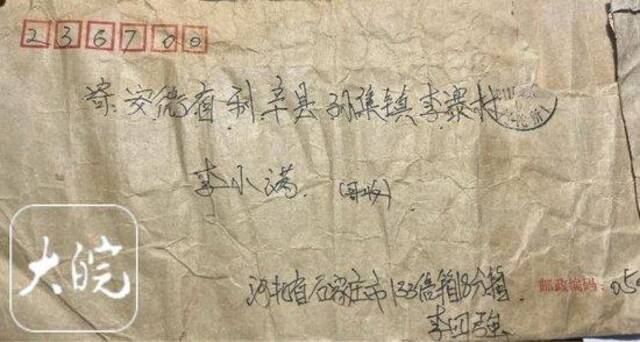 236700
寄: 安徽省利辛县孙集镇李寨村
李小满 (哥收)
大皖
河北省石家庄市133信箱18分箱
邮政编码: 050
李回强